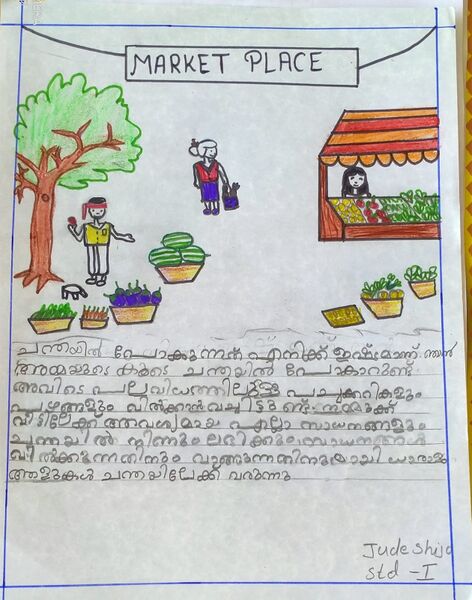 MARKET PLACE
ചന്തയിൽ പോകുന്നത് എനിക്ക് ഇഷ്ടമാണ്. ഞാൻ
അമ്മയുടെ കൂടെ ചന്തയിൽ പോകാറുണ്ട്
അവിടെ പലവിധത്തിലുള്ള പച്ചക്കറികളും
പഴങ്ങളും വിൽക്കാൻ വച്ചിട്ടുണ്ട്. നമുക്ക്
വീട്ടിലേക്ക് ആവശ്യമായ എല്ലാ സാധനങ്ങളും
ചന്തയിൽ നിന്നും ലഭിക്കും. സാധനങ്ങൾ
വിൽക്കുന്നതിനും വാങ്ങുന്നതിനുമായി ധാരാളം
ആളുകൾ ചന്തയിലേക്ക് വരുന്നു
Jude Shijo
Std - I